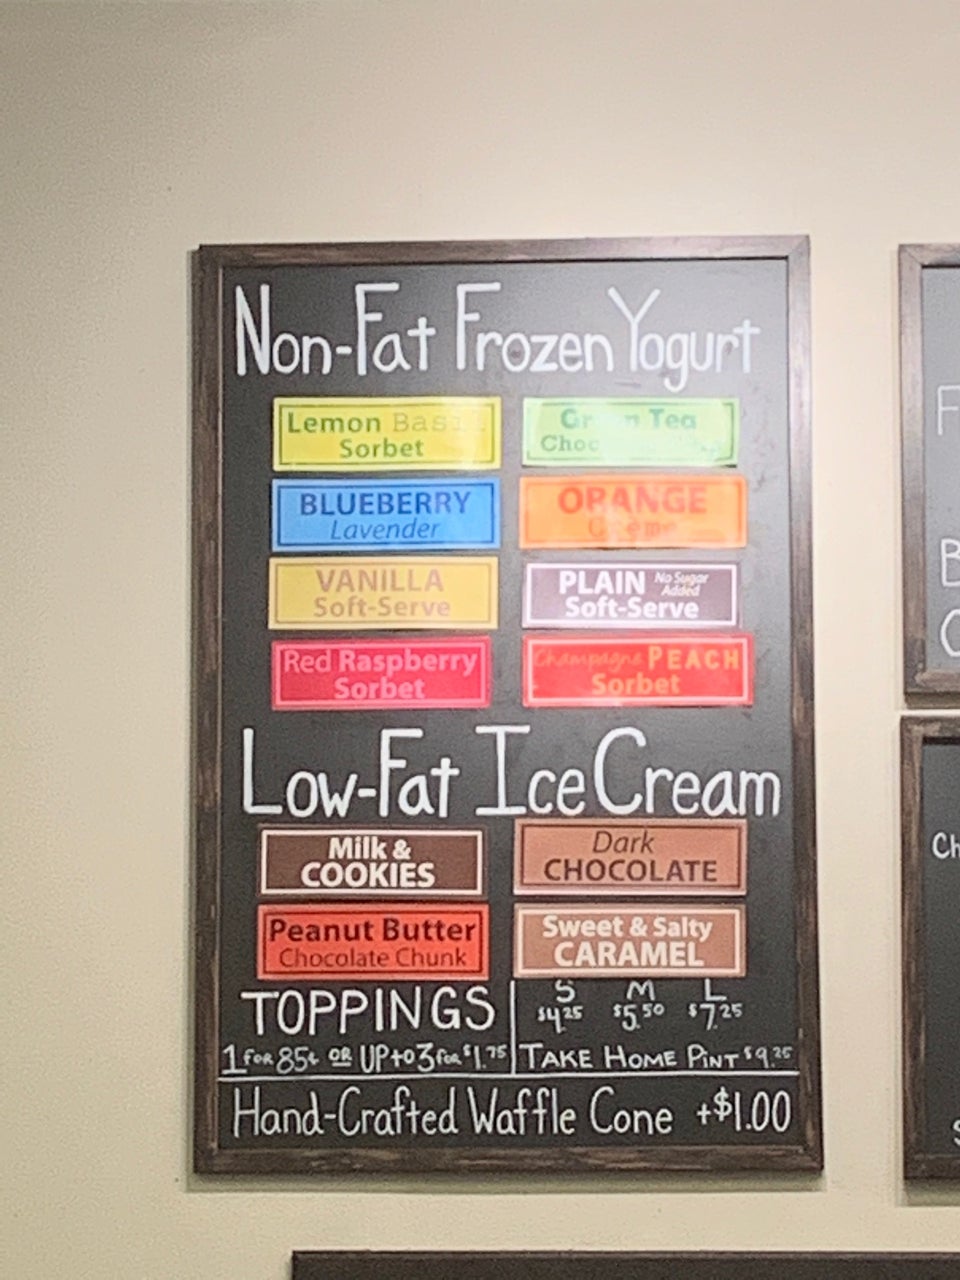 Non-Fat Frozen Yogurt
Lemon Basil
Sorbet
Green Tea
BLUEBERRY
Lavender
ORANGE
Creme
VANILLA
Soft-Serve
PLAIN No Sugar Added
Soft-Serve
Red Raspberry
Sorbet
Champagne PEACH
Sorbet
Low-Fat Ice Cream
Milk &
COOKIES
Dark
CHOCOLATE
Peanut Butter
Chocolate Chunk
Sweet & Salty
CARAMEL
TOPPINGS
1 for 85¢ OR UP to 3 for $1.75
S M L
$4.25 $5.50 $7.25
TAKE HOME PINT $9.25
Hand-Crafted Waffle Cone +$1.00